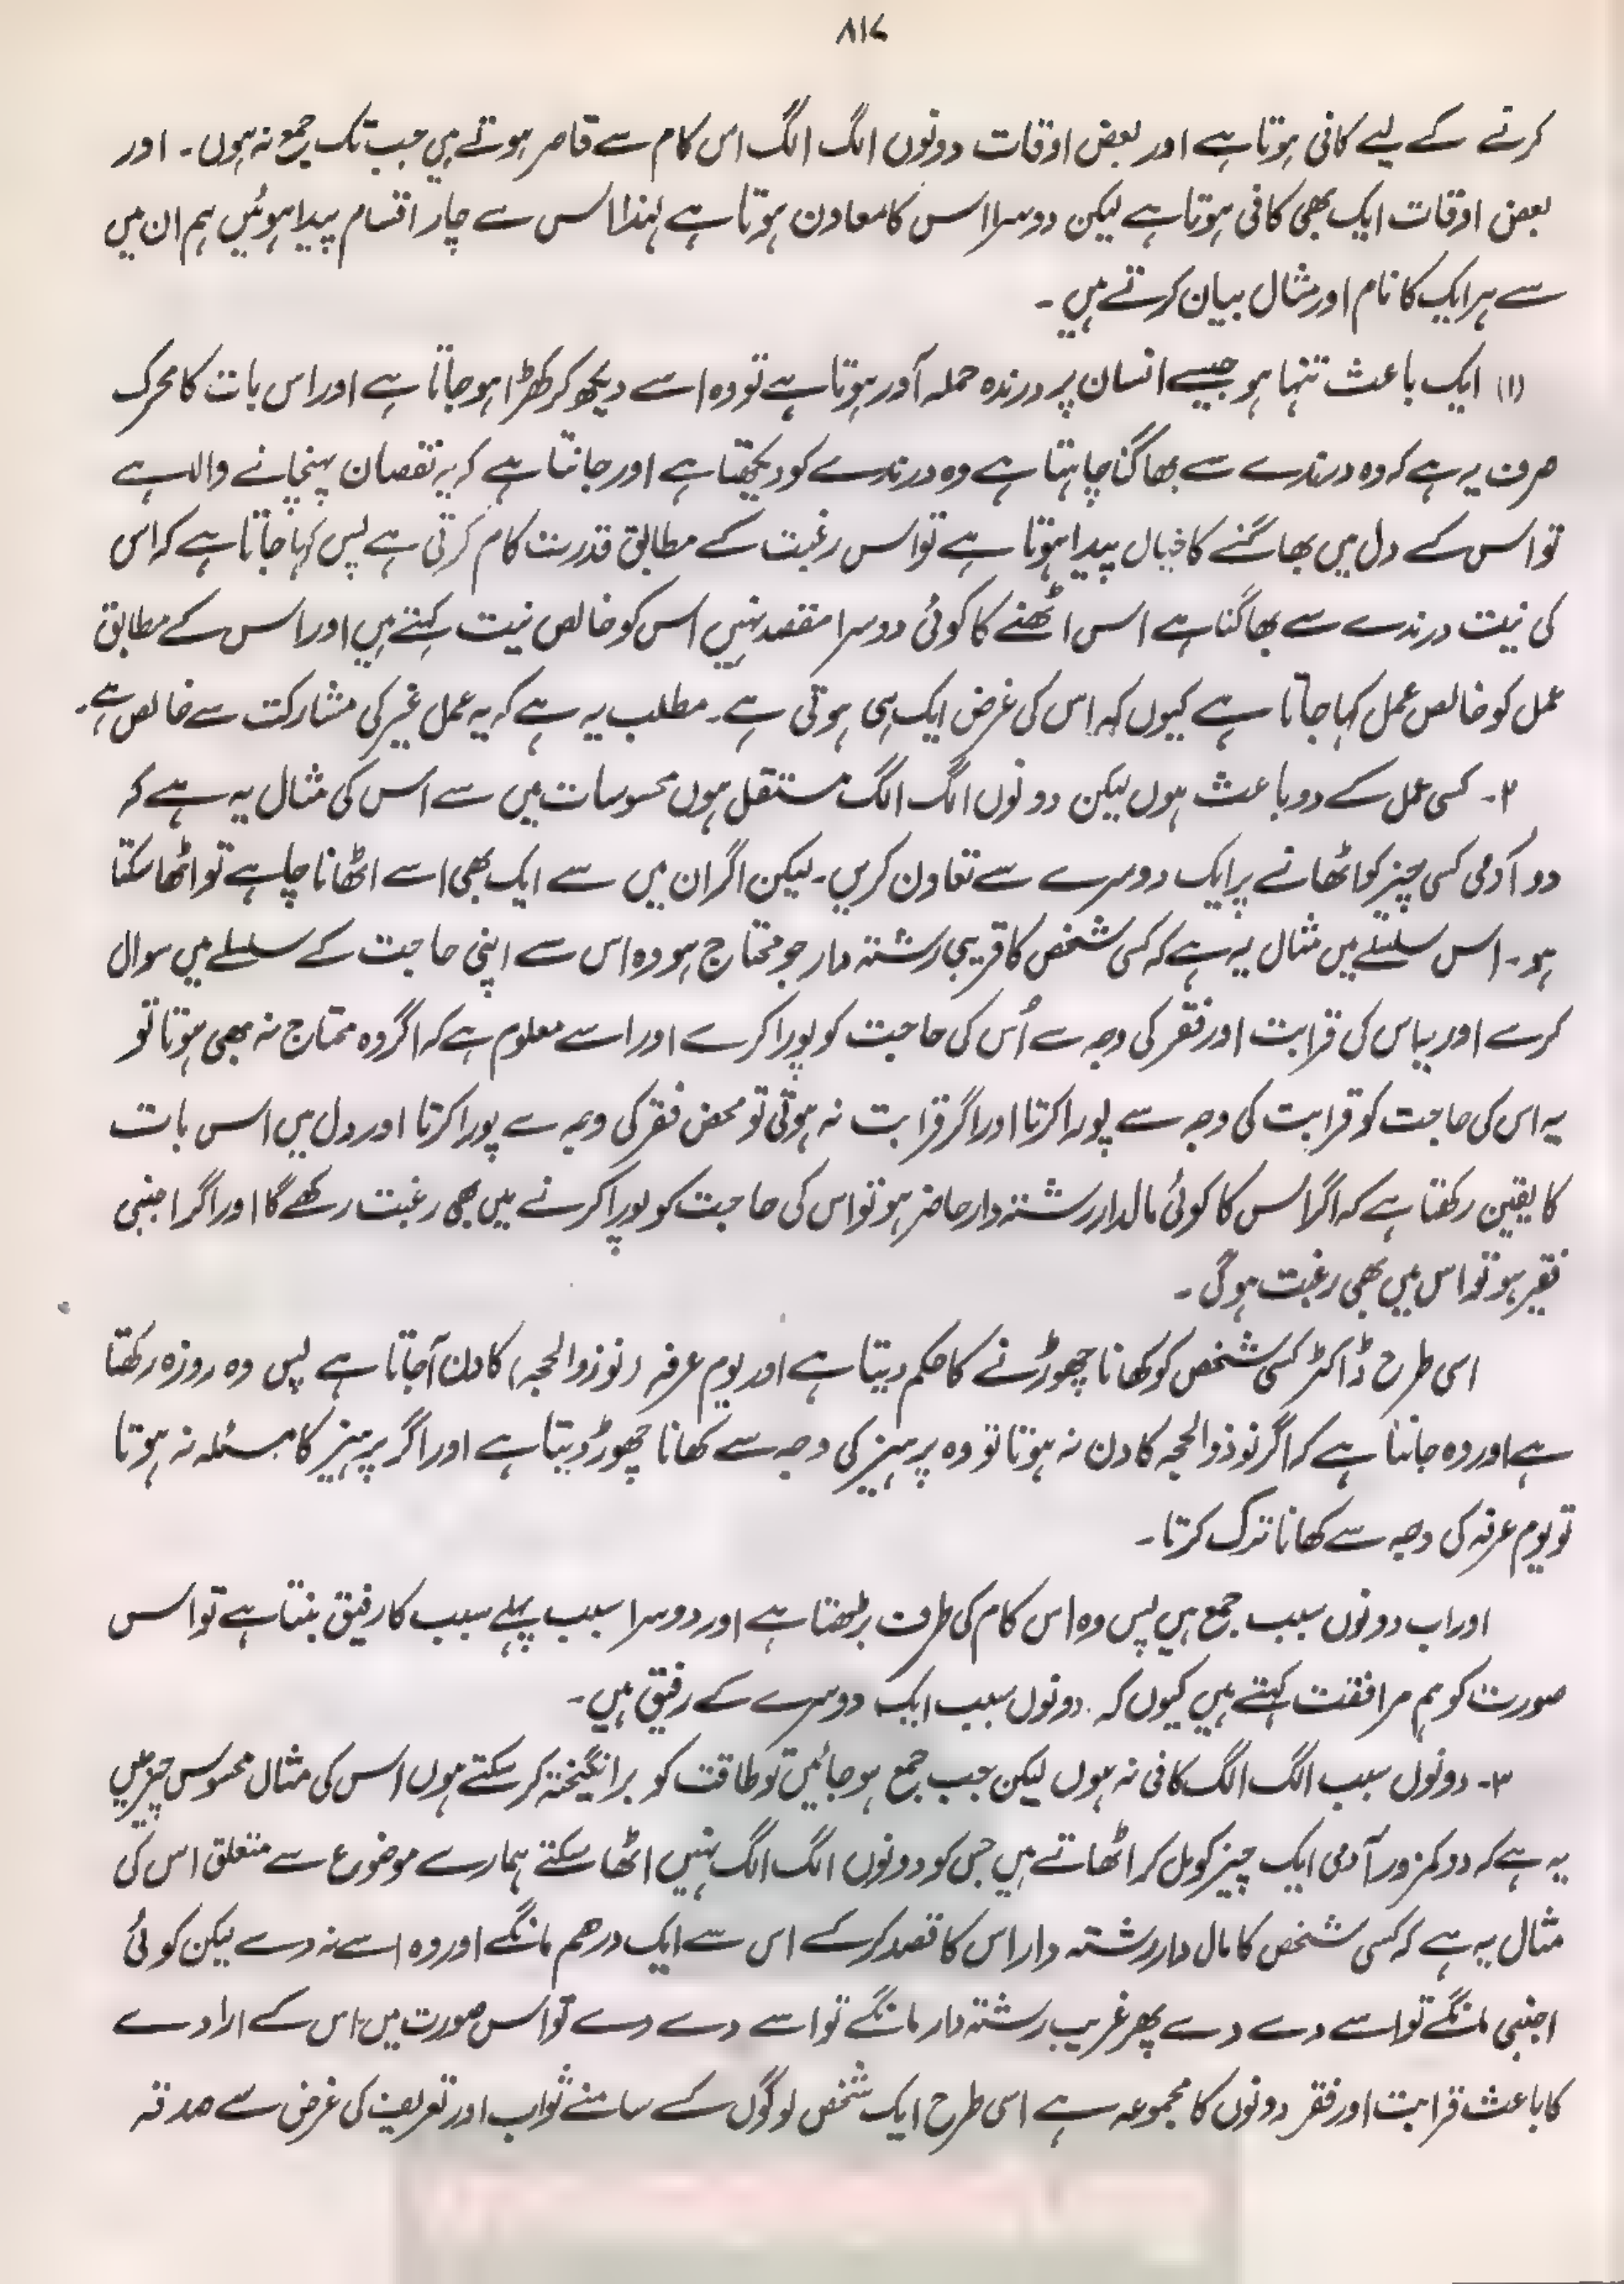 ۸۱۷
کرنے کے لیے کافی ہوتا ہے اور بعض اوقات دونوں الگ الگ اس کام سے قاصر ہوتے ہیں جب تک جمع نہ ہوں۔ اور
بعض اوقات ایک بھی کافی ہوتا ہے لیکن دوسرا اس کا معاون ہوتا ہے لہٰذا اس سے چار اقسام پیدا ہوئیں ہم ان میں
سے ہر ایک کا نام اور مثال بیان کرتے ہیں۔
(۱) ایک باعث تنہا ہو جیسے انسان پر درندہ حملہ آور ہوتا ہے تو وہ اسے دیکھ کر کھڑا ہو جاتا ہے اور اس بات کا محرک
صرف یہ ہے کہ وہ درندے سے بھاگنا چاہتا ہے وہ درندے کو دیکھتا ہے اور جانتا ہے کہ یہ نقصان پہنچانے والا ہے
تو اس کے دل میں بھاگنے کا خیال پیدا ہوتا ہے تو اس رغبت کے مطابق قدرت کام کرتی ہے پس کہا جاتا ہے کہ اس
کی نیت درندے سے بھاگنا ہے اس اٹھنے کا کوئی دوسرا مقصد نہیں اس کو خالص نیت کہتے ہیں اور اس کے مطابق
عمل کو خالص عمل کہا جاتا ہے کیوں کہ اس کی غرض ایک ہی ہوتی ہے۔ مطلب یہ ہے کہ یہ عمل غیر کی مشارکت سے خالص ہے۔
۲۔ کسی عمل کے دو باعث ہوں لیکن دونوں الگ الگ مستقل ہوں محسوسات میں سے اس کی مثال یہ ہے کہ
دو آدمی کسی چیز کو اٹھانے پر ایک دوسرے سے تعاون کریں۔ لیکن اگر ان میں سے ایک بھی اسے اٹھانا چاہے تو اٹھا سکتا
ہو۔ اس سلسلے میں مثال یہ ہے کہ کسی شخص کا قریبی رشتہ دار جو محتاج ہو وہ اس سے اپنی حاجت کے سلسلے میں سوال
کرے اور یہ اس کی قرابت اور فقر کی وجہ سے اُس کی حاجت کو پورا کرے اور اسے معلوم ہے کہ اگر وہ محتاج نہ بھی ہوتا تو
یہ اس کی حاجت کو قرابت کی وجہ سے پورا کرتا اور اگر قرابت نہ ہوتی تو محض فقر کی وجہ سے پورا کرتا اور دل میں اس بات
کا یقین رکھتا ہے کہ اگر اس کا کوئی مالدار رشتہ دار حاضر ہو تو اس کی حاجت کو پورا کرنے میں بھی رغبت رکھے گا اور اگر اجنبی
فقیر ہو تو اس میں بھی رغبت ہوگی۔
اسی طرح ڈاکٹر کسی شخص کو کھانا چھوڑنے کا حکم دیتا ہے اور یوم عرفہ (نو ذوالحجہ) کا دن آجاتا ہے پس وہ روزہ رکھتا
ہے اور وہ جانتا ہے کہ اگر نو ذوالحجہ کا دن نہ ہوتا تو وہ پرہیز کی وجہ سے کھانا چھوڑ دیتا ہے اور اگر پرہیز کا مسئلہ نہ ہوتا
تو یوم عرفہ کی وجہ سے کھانا ترک کرتا۔
اور اب دونوں سبب جمع ہیں پس وہ اس کام کی طرف بڑھتا ہے اور دوسرا سبب پہلے سبب کا رفیق بنتا ہے تو اس
صورت کو ہم مرافقت کہتے ہیں کیوں کہ دونوں سبب ایک دوسرے کے رفیق ہیں۔
۳۔ دونوں سبب الگ الگ کافی نہ ہوں لیکن جب جمع ہو جائیں تو طاقت کو برانگیختہ کر سکتے ہوں اس کی مثال محسوس چیز میں
یہ ہے کہ دو کمزور آدمی ایک چیز کو مل کر اٹھاتے ہیں جس کو دونوں الگ الگ نہیں اٹھا سکتے ہمارے موضوع سے متعلق اس کی
مثال یہ ہے کہ کسی شخص کا مال دار رشتہ دار اس کا قصد کرکے اس سے ایک درھم مانگے اور وہ اسے نہ دے لیکن کوئی
اجنبی مانگے تو اسے دے دے پھر غریب رشتہ دار مانگے تو اسے دے دے تو اس صورت میں اس کے ارادے
کا باعث قرابت اور فقر دونوں کا مجموعہ ہے اسی طرح ایک شخص لوگوں کے سامنے ثواب اور تعریف کی غرض سے صدقہ